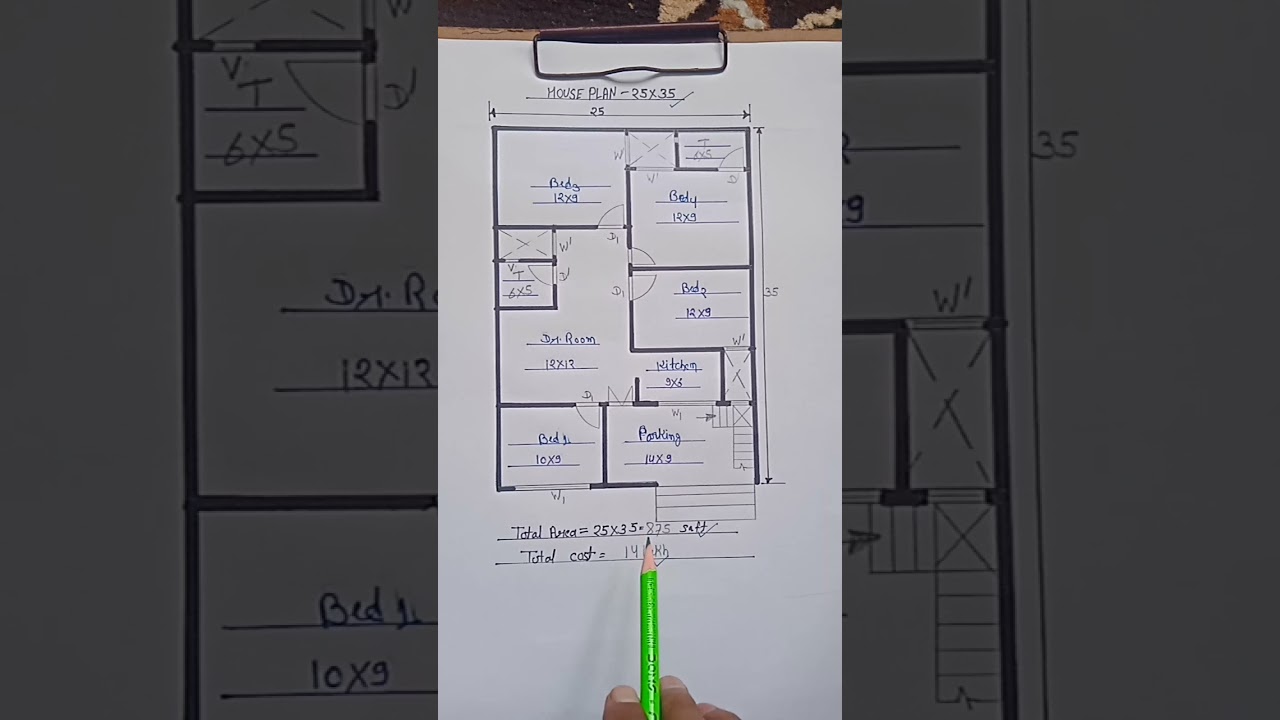 HOUSE PLAN - 25X35
25
T
6X5
W'
W'
D'
Bed3
12X9
Bed4
12X9
D1
W'
V
T
6X5
D'
D1
Bed2
12X9
35
Dr. Room
12X12
W'
Kitchen
D1
W1
Bed1
10X9
Parking
14X9
W1
Total Area = 25X35=875 Sqft
Total cost= 14
V
T
6X5
D'
W'
35
Dr. Ro
12X12
W'
Bed1
10X9